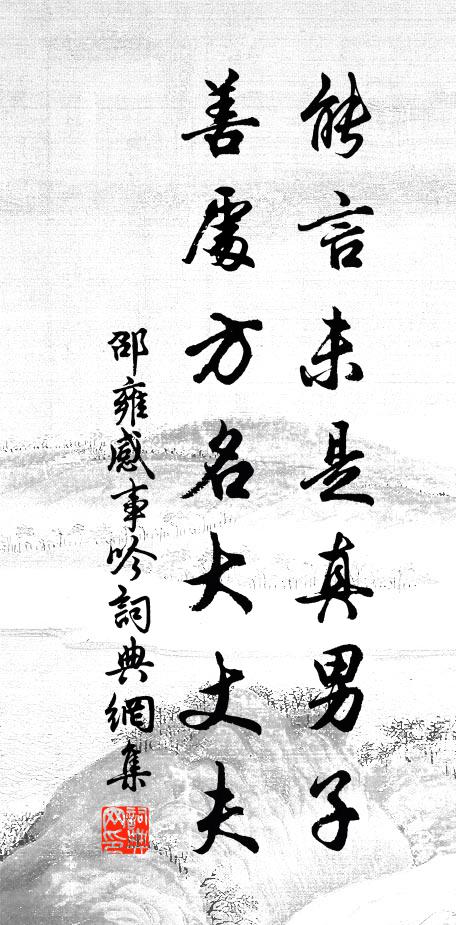 能言未是真男子
善處方名大丈夫
邵雍感事吟詞典網集